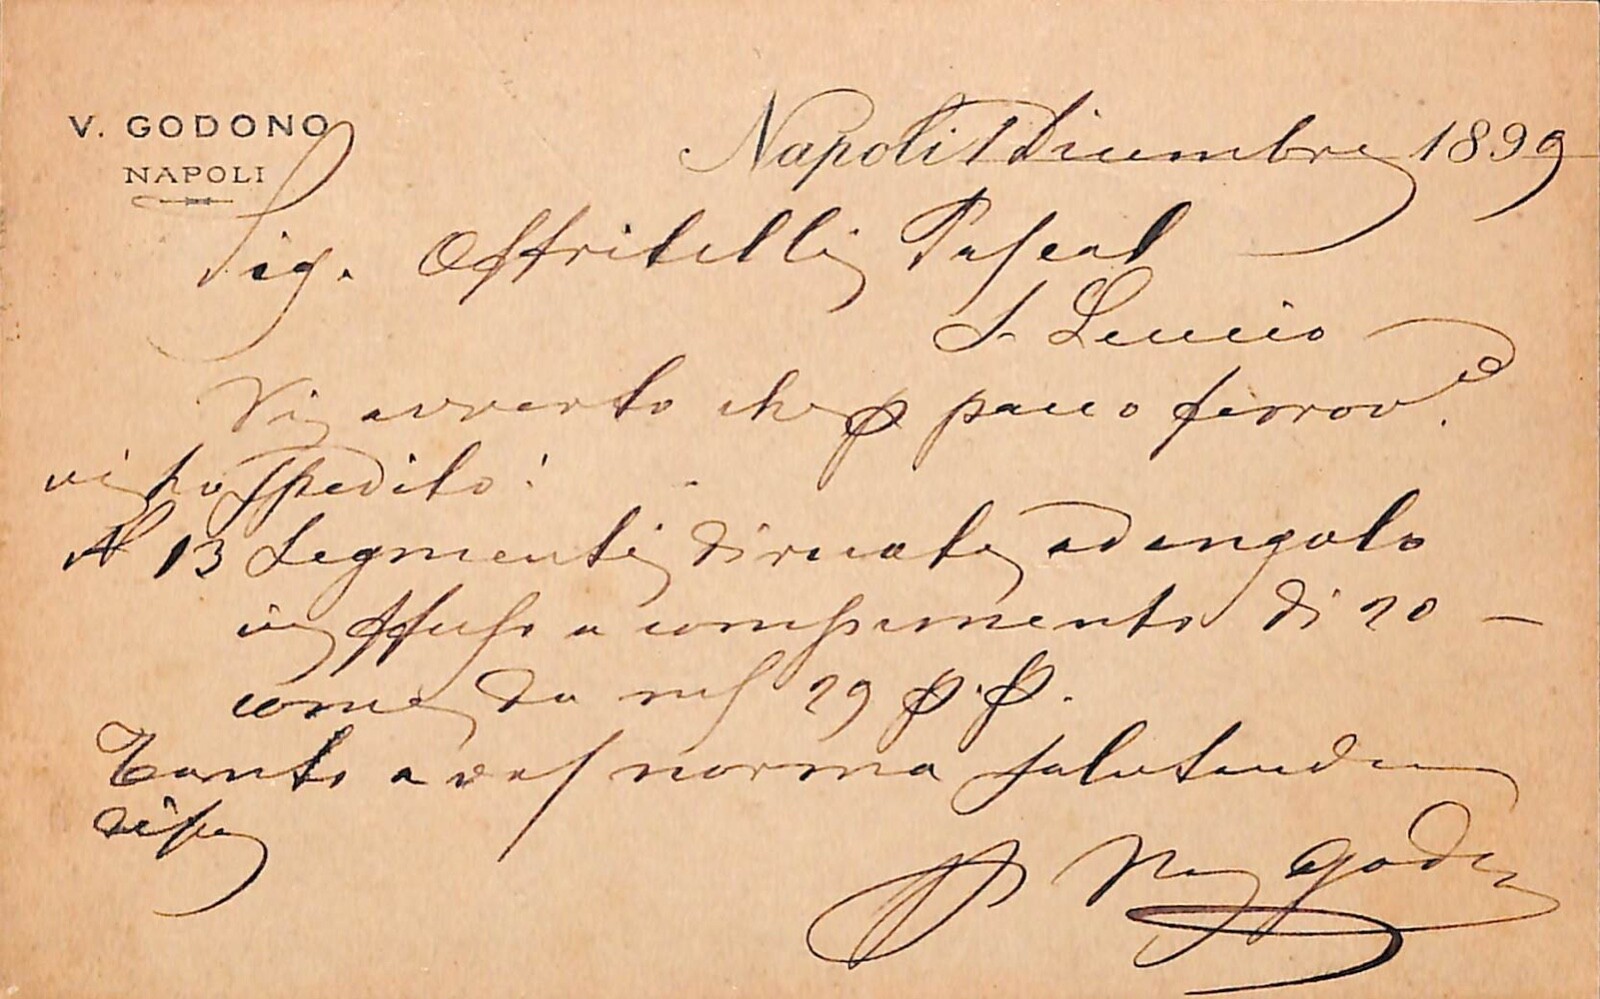 V. GODONO
NAPOLI
Napoli 1 Dicembre 1899
Sig. Offritelli Pascal
S. Leucio
Vi avverto che p pacco ferrov.
vi ho spedito:
N 13 Segmenti di ruote ad angolo
in a compimento di 20 –
come da 29 p. p.
Tanto a vos norma salutando